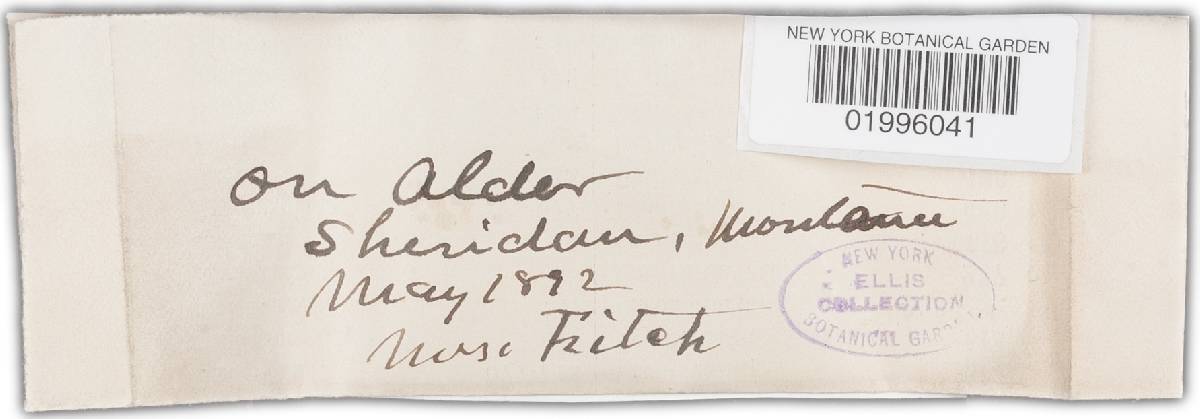 NEW YORK BOTANICAL GARDEN
01996041
on Alder
Sheridan, Montana
May 1892
Mrs. Fitch
NEW YORK
ELLIS
COLLECTION
BOTANICAL GARDEN